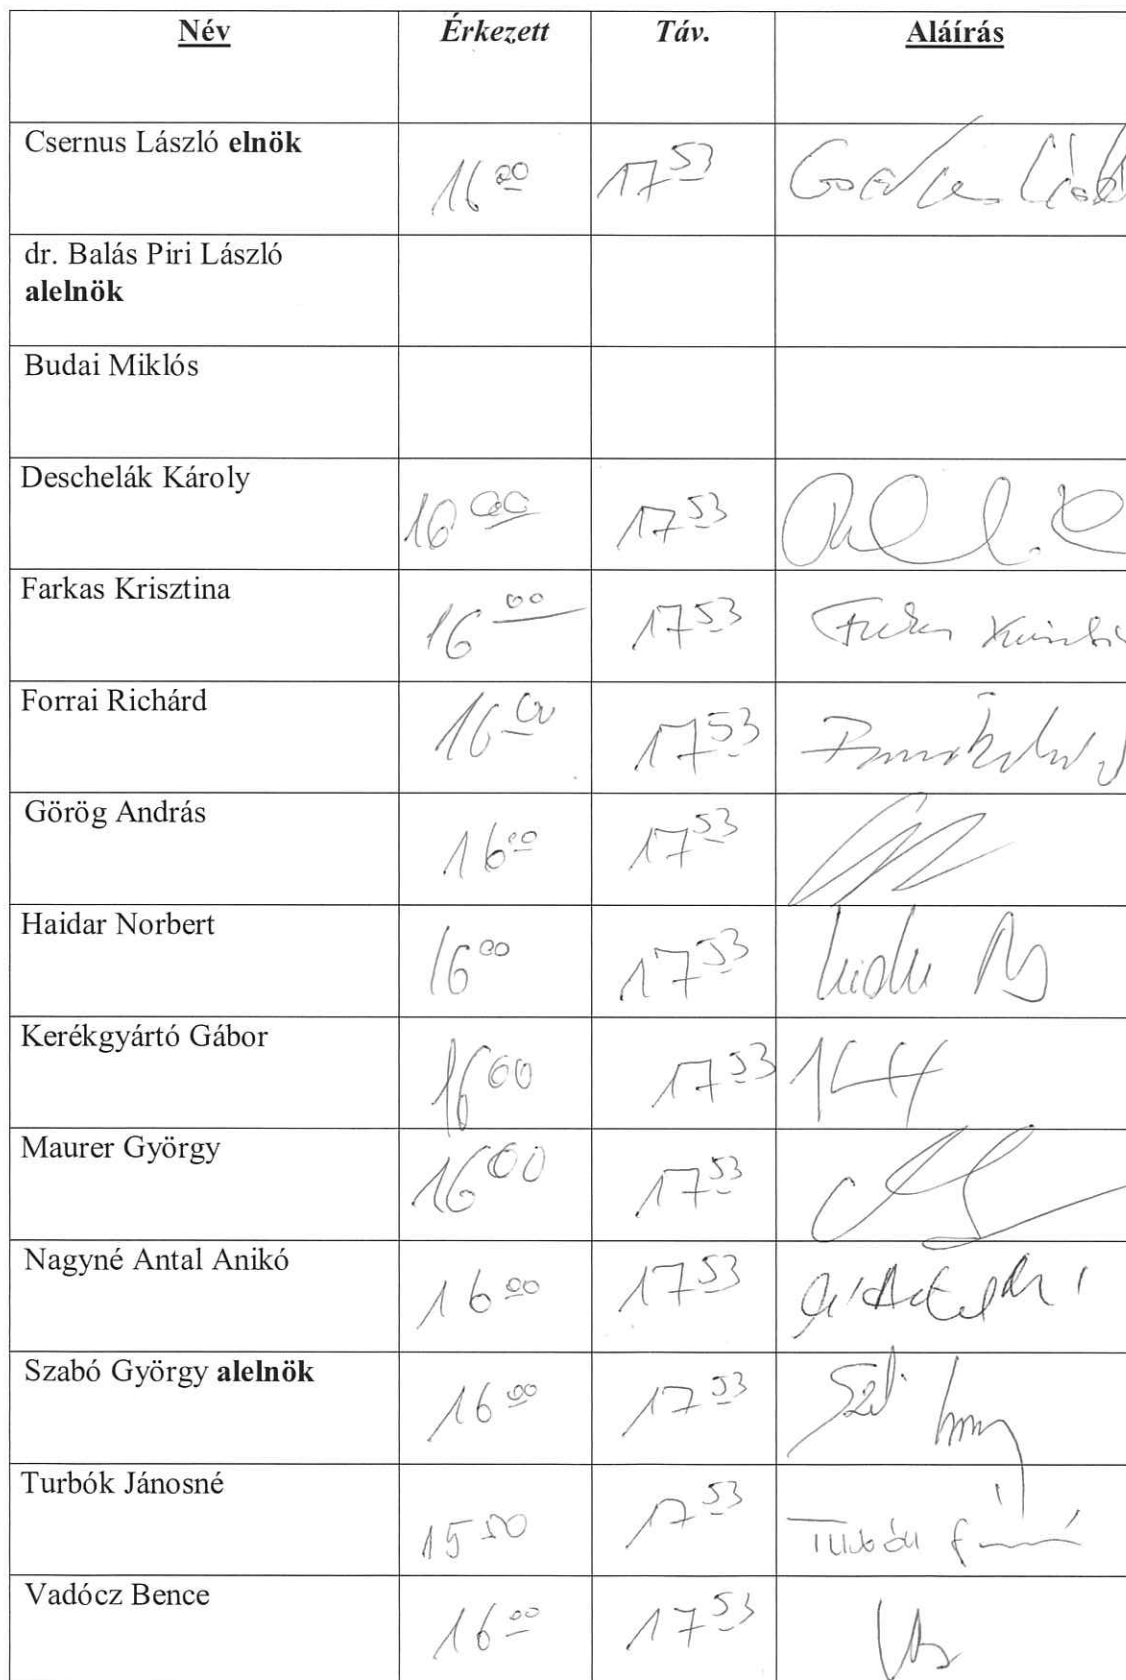 Név Érkezett Táv. Aláírás
Csernus László elnök 16 00 17 53
dr. Balás Piri László
alelnök
Budai Miklós
Deschelák Károly 16 00 17 53
Farkas Krisztina 16 00 17 53
Forrai Richárd 16 00 17 53
Görög András 16 00 17 53
Haidar Norbert 16 00 17 53
Kerékgyártó Gábor 16 00 17 53
Maurer György 16 00 17 53
Nagyné Antal Anikó 16 00 17 53
Szabó György alelnök 16 00 17 53
Turbók Jánosné 15 50 17 53
Vadócz Bence 16 00 17 53